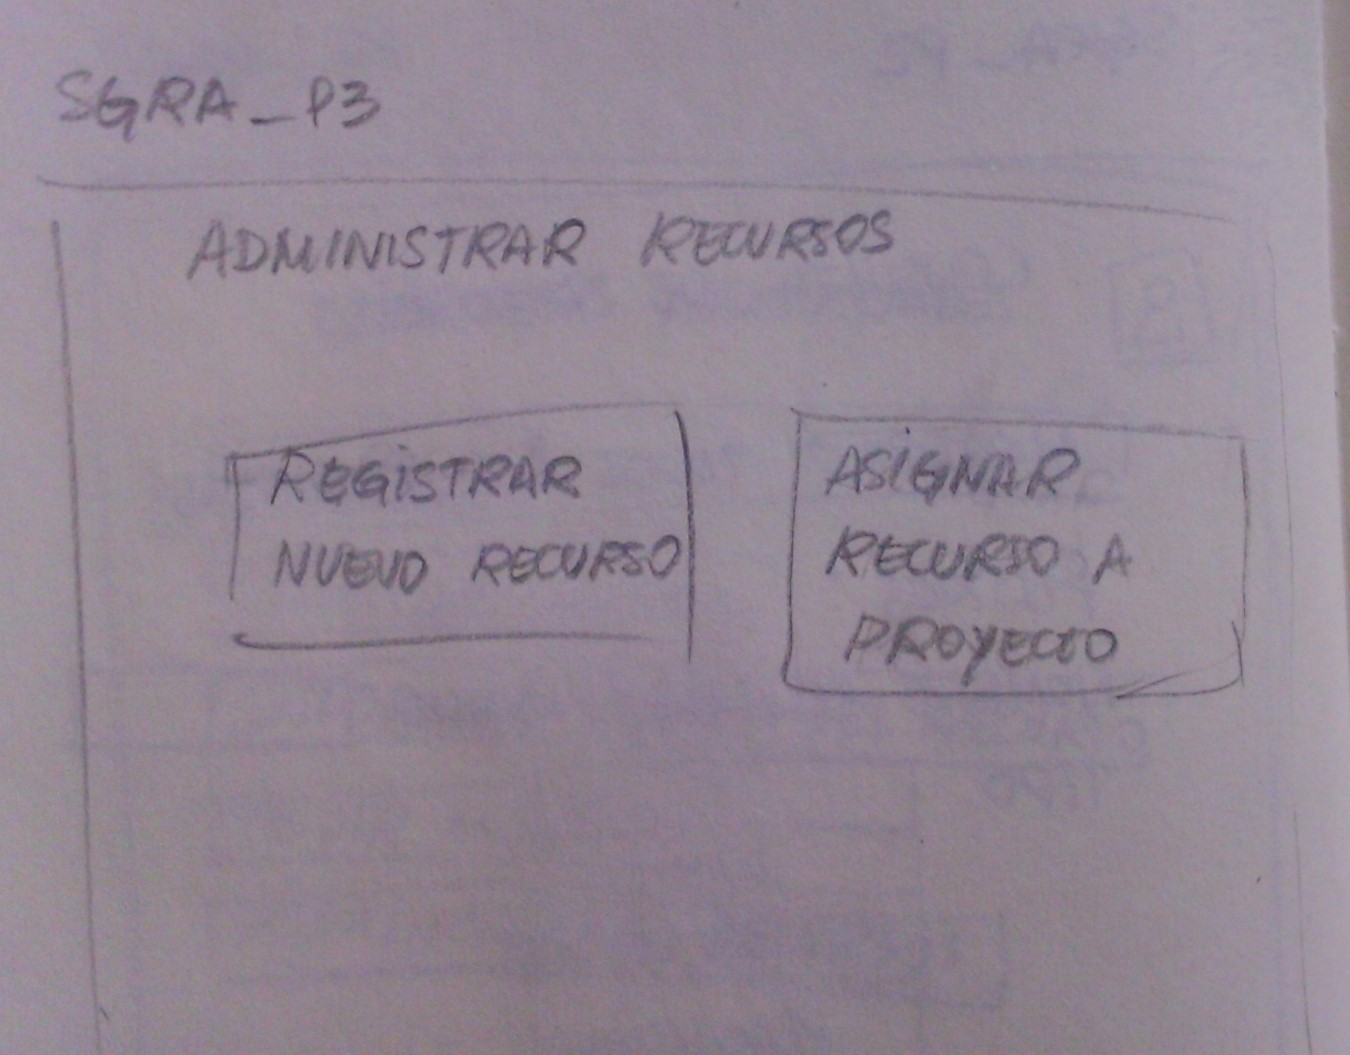 SGRA_P3
ADMINISTRAR RECURSOS
REGISTRAR
NUEVO RECURSO
ASIGNAR
RECURSO A
PROYECTO